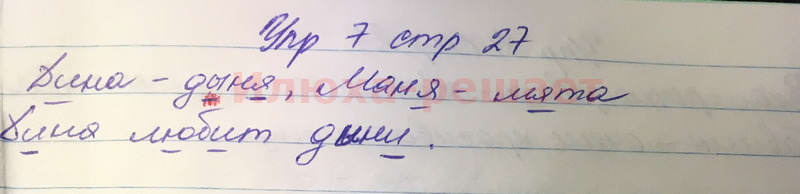 Упр 7 стр 27
Дина - дыня, Маня - мята
Диня любит дыни.
Илюха решает